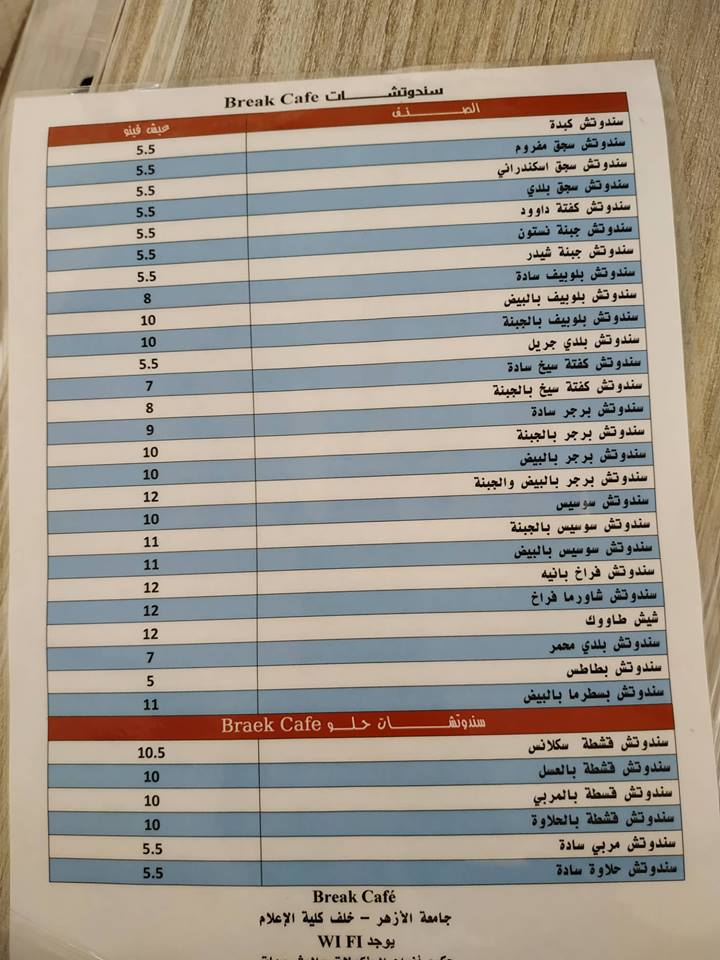 سندوتشـــــات Break Cafe
الصـــــنف عيش فينو
سندوتش كبدة 5.5
سندوتش سجق مفروم 5.5
سندوتش سجق اسكندراني 5.5
سندوتش سجق بلدي 5.5
سندوتش كفتة داوود 5.5
سندوتش جبنة نستون 5.5
سندوتش جبنة شيدر 5.5
سندوتش بلوبيف سادة 8
سندوتش بلوبيف بالبيض 10
سندوتش بلوبيف بالجبنة 10
سندوتش بلدي جريل 5.5
سندوتش كفتة سيخ سادة 7
سندوتش كفتة سيخ بالجبنة 8
سندوتش برجر سادة 9
سندوتش برجر بالجبنة 10
سندوتش برجر بالبيض 10
سندوتش برجر بالبيض والجبنة 12
سندوتش سوسيس 10
سندوتش سوسيس بالجبنة 11
سندوتش سوسيس بالبيض 11
سندوتش فراخ بانيه 12
سندوتش شاورما فراخ 12
شيش طاووك 12
سندوتش بلدي محمر 7
سندوتش بطاطس 5
سندوتش بسطرما بالبيض 11
سندوتشـــــات حلـــو Braek Cafe
سندوتش قشطة سكلانس 10.5
سندوتش قشطة بالعسل 10
سندوتش قسطة بالمربي 10
سندوتش قشطة بالحلاوة 10
سندوتش مربي سادة 5.5
سندوتش حلاوة سادة 5.5
Break Café
جامعة الأزهر – خلف كلية الإعلام
يوجد WI FI